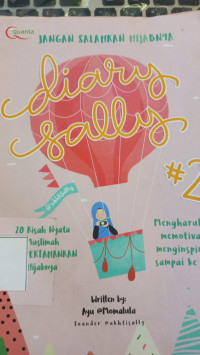 Quanta
JANGAN SALAHKAN HIJABNYA
diary
sally
#2
@ukhtisally
20 Kisah Nyata
Muslimah
PERTAHANKAN
Hijabnya
Mengharuk
memotiva
menginspir
sampai ke
Written by:
Ayu @Momalula
Founder @ukhtisally